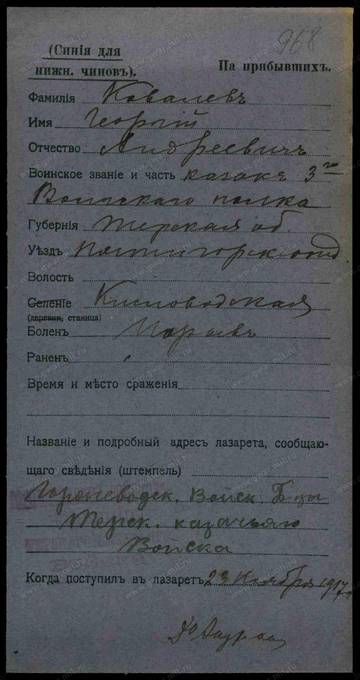 968
(Синія для
нижн. чиновъ).
На прибывшихъ.
Фамилія Ковалевъ
Имя Георгій
Отчество Андреевичъ
Воинское званіе и часть казакъ 3го
полка
Губернія Терская об.
Уѣздъ
Волость
Селеніе Кисловодская
(деревня, станица)
Боленъ
Раненъ
Время и мѣсто сраженія
Названіе и подробный адресъ лазарета, сообщаю-
щаго свѣдѣнія (штемпель)
Войск. Б-цы
Терск. казачьяго
Войска
Когда поступилъ въ лазаретъ 23 Ноября 1917